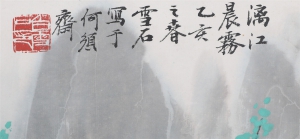 漓江
晨霧
乙亥
之春
雪石
写于
何須
齋